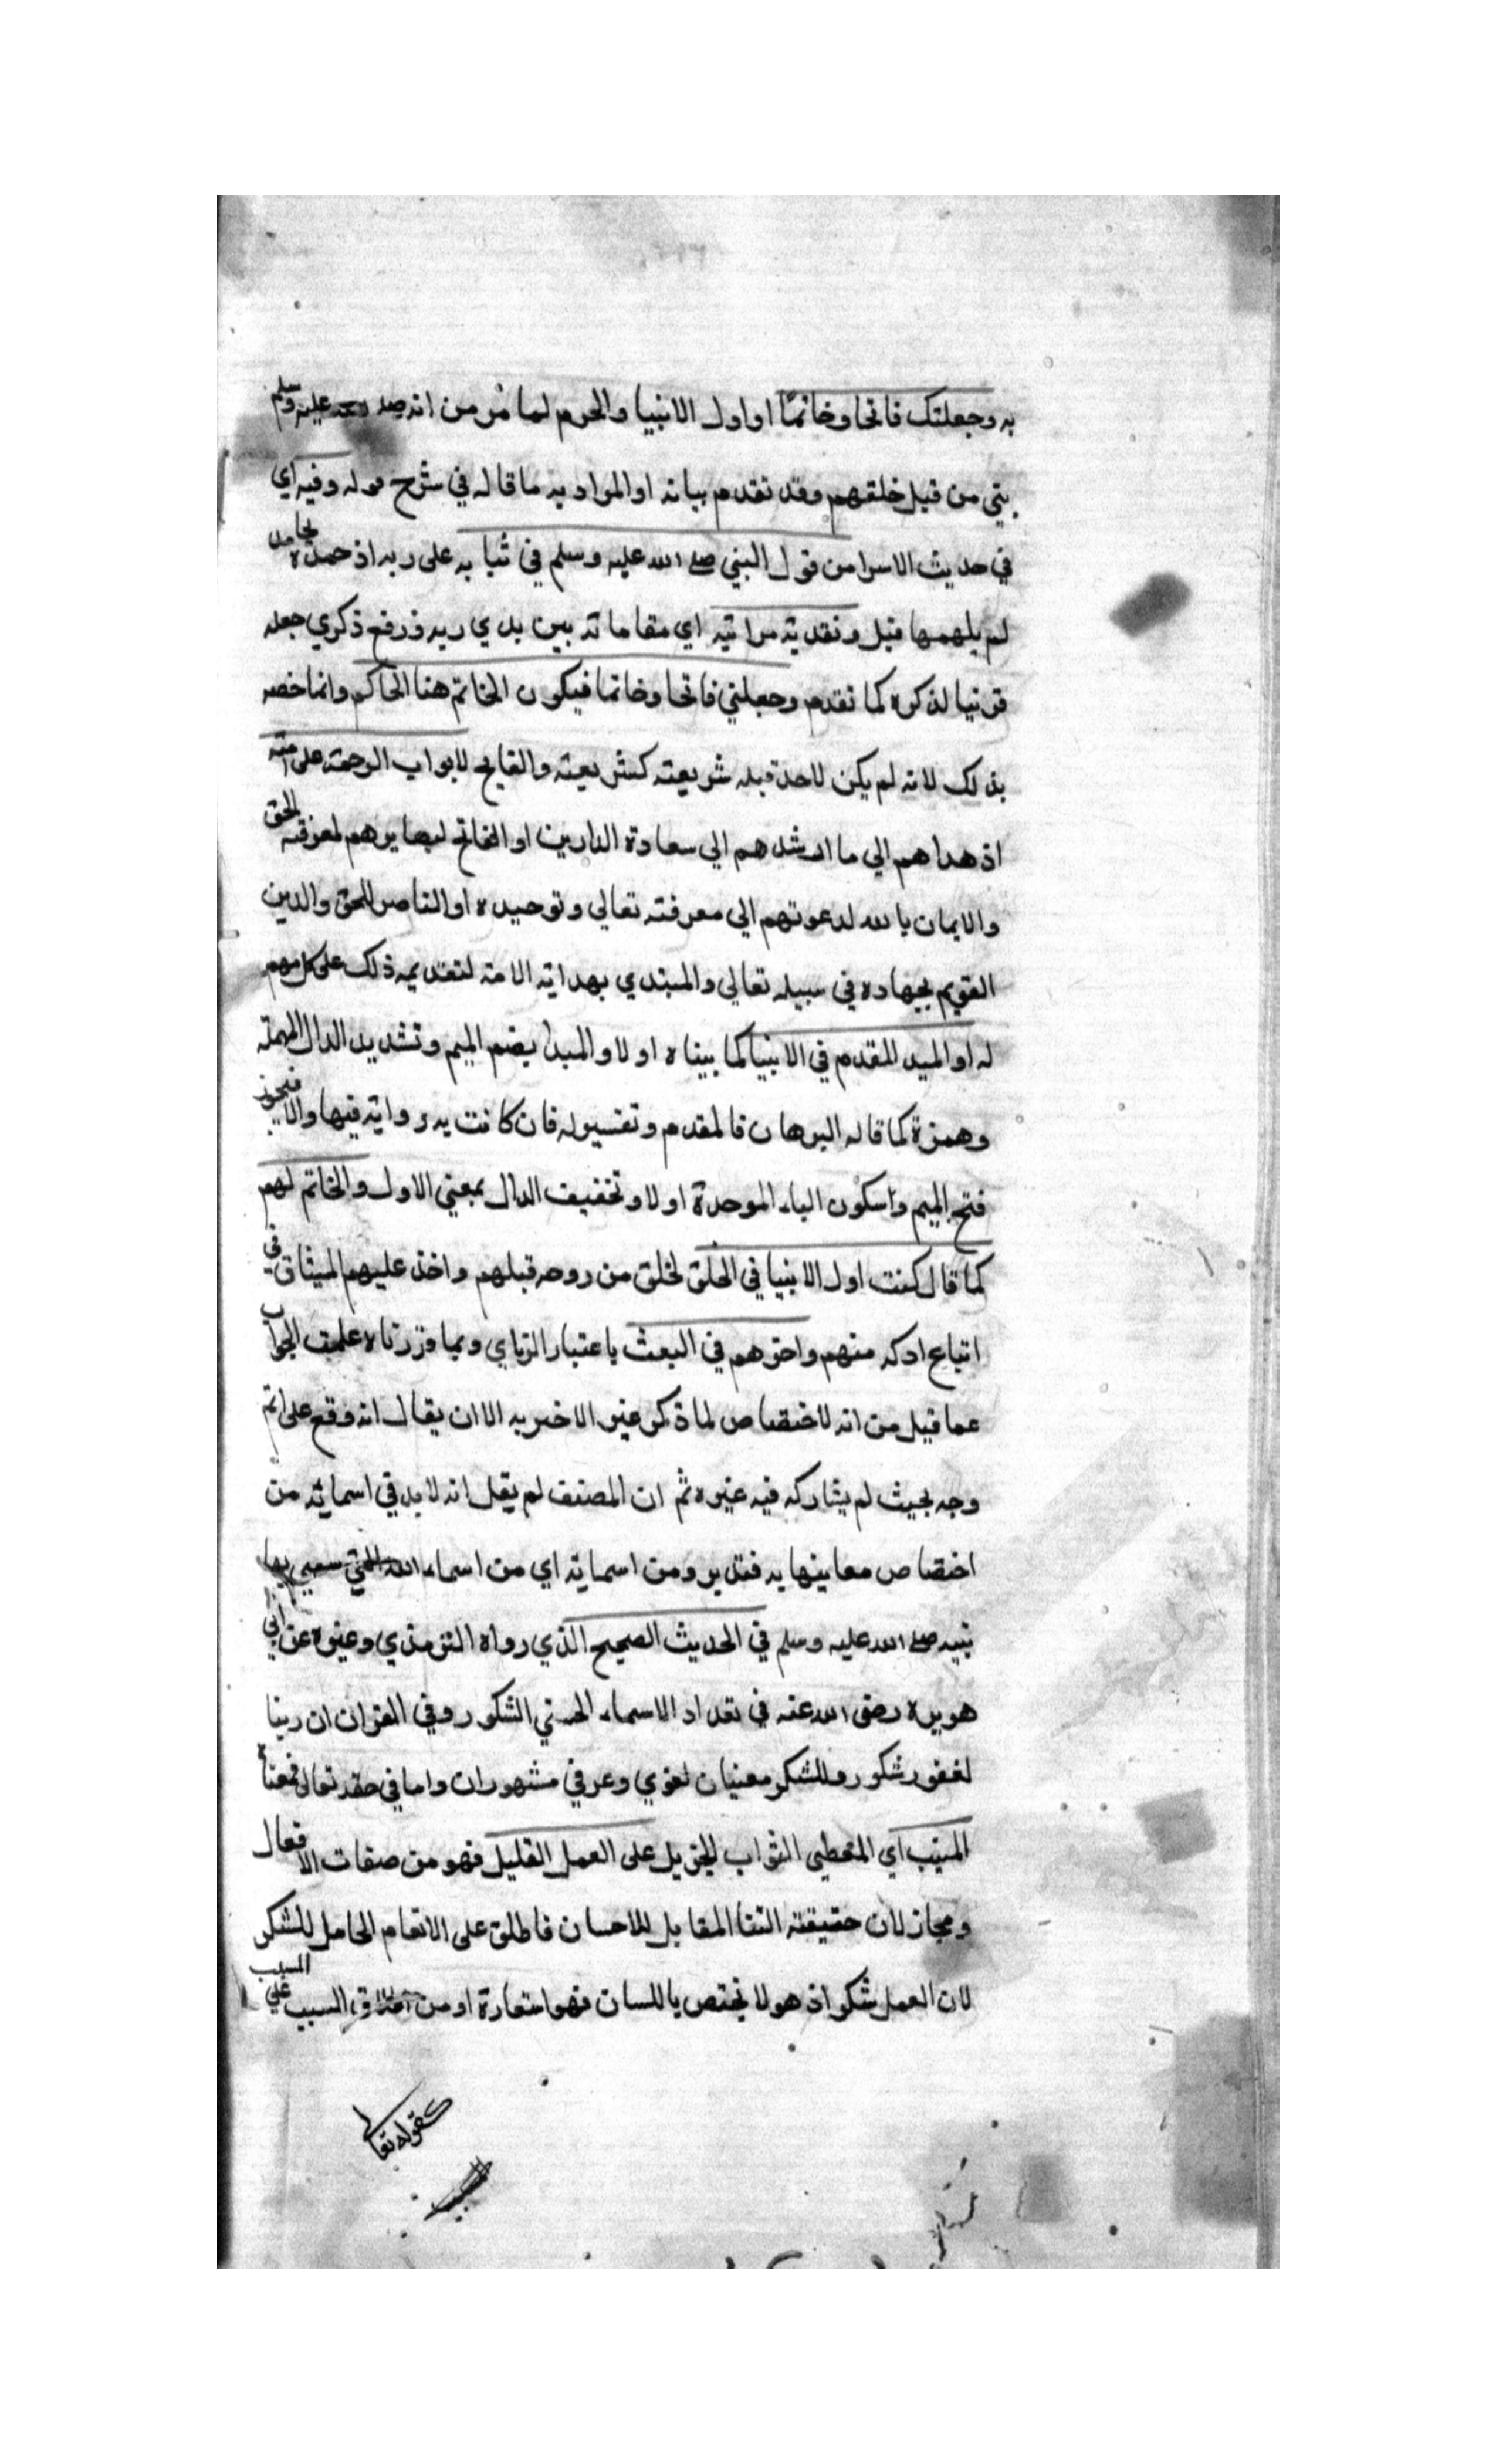 به وجعلتك فاتحا وخاتمًا او اول الانبيا واخرهم لما مر من انه صلى الله عليه وسلم
نبي من قبل خلقهم وقد تقدم بيانه او المراد به ما قاله في شرح قوله وفيه اي
في حديث الاسرا من قول النبي صلى الله عليه وسلم في ثنايه على ربه اذ حمده بمحامد
لم يلهمها قبل وتقديه مراتبه اي مقاماته بين يدي ربه ورفع ذكري جعله
قرينا لذكره كما تقدم وجعلني فاتحا وخاتما فيكون الخاتم هنا الحاكم وانما خصه
بذلك لانه لم يكن لاحد قبله شريعته كشريعته والفاتح لابواب الرحمة على امته
اذ هداهم الي ما ارشدهم الي سعادة الدارين او الفاتح لبصايرهم لمعرفته الحق
والايمان بالله لدعوتهم الي معرفته تعالي وتوحيده او الناصر للحق والدين
القويم بجهاده في سبيله تعالي والمبتدي بهداية الامة لتقديمه ذلك على كل مهم
له او المبد المقدم في الانبيا كما بيناه اولا والمبدا بضم الميم وتشديد الدال المهملة
وهمزة كما قاله البرهان فالمقدم وتفسير له فان كانت به رواية فبها والا فيجوز
فتح الميم واسكون الباء الموحدة اولا وتخفيف الدال بمعني الاول والخاتم لهم
كما قال كنت اول الانبيا في الخلق لخلق من روحه قبلهم واخذ عليهم الميثاق في
اتباع ادركه منهم واخرهم في البعث باعتبار الزماي وبما قررناه علمت الجواب
عما قيل من انه لا اختصاص لما ذكر غير الاخير به الا ان يقال انه وقع على اتم
وجه بحيث لم يشاركه فيه غيره ثم ان المصنف لم يقل انه لا بد في اسمائه من
اختصاص معانيها به فتدبر ومن اسمايه اي من اسماء الله التي سمي بها
نبيه صلى الله عليه وسلم في الحديث الصحيح الذي رواه الترمذي وغيره عن ابي
هريرة رضى الله عنه في تعداد الاسماء الحسني الشكور وفي القران ان ربنا
لغفور شكور وللشكر معنيان لغوي وعرفي مشهوران واما في حقه تعالى فمعناه
المثيب اي المعطي الثواب الجزيل على العمل القليل فهو من صفات الافعال
ومجاز لان حقيقته الثنا المقابل للاحسان فاطلق على الانعام الحامل للشكر
لان العمل شكر اذ هو لا يختص باللسان فهو استعارة او من اطلاق السبب على المسبب
كقوله تعالى